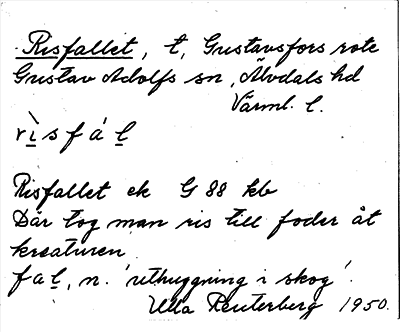 Risfallet, t, Gustavsfors rote
Gustav Adolfs sn, Älvdals hd
Värml. l.
rìsfál
Risfallet ek G 88 kb
Där tog man ris till foder åt
kreaturen.
fal, n. 'uthuggning i skog'.
Ulla Reuterberg 1950.